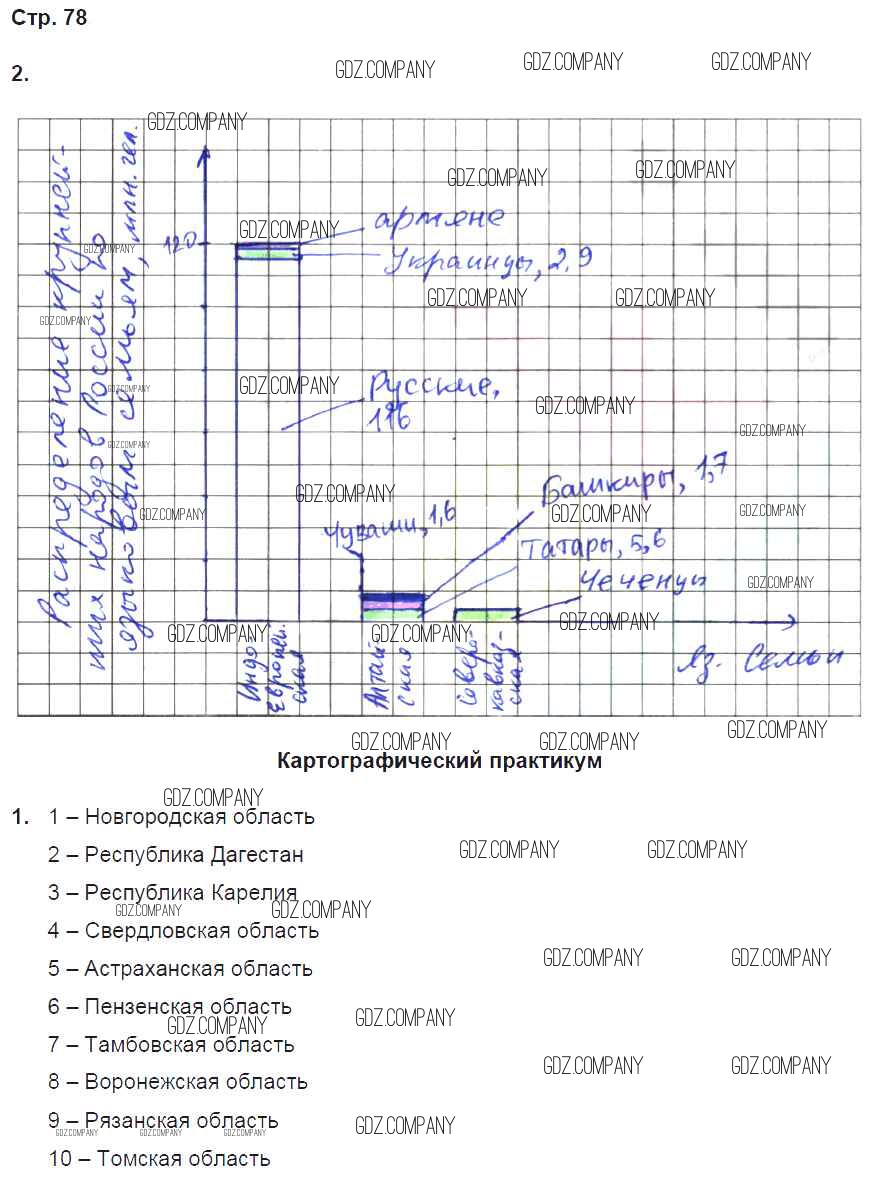 Стр. 78
2.
Распределение крупней-
ших народов России по
языковым семьям, млн. чел.
120
армяне
Украинцы, 2,9
Русские,
116
Башкиры, 1,7
Чуваши, 1,6
Татары, 5,6
Чеченцы
Индо
Европей.
ская
Алтай
ская
Северо-
кавказ-
ская
Яз. Семьи
Картографический практикум
1. 1 – Новгородская область
2 – Республика Дагестан
3 – Республика Карелия
4 – Свердловская область
5 – Астраханская область
6 – Пензенская область
7 – Тамбовская область
8 – Воронежская область
9 – Рязанская область
10 – Томская область
GDZ.COMPANY